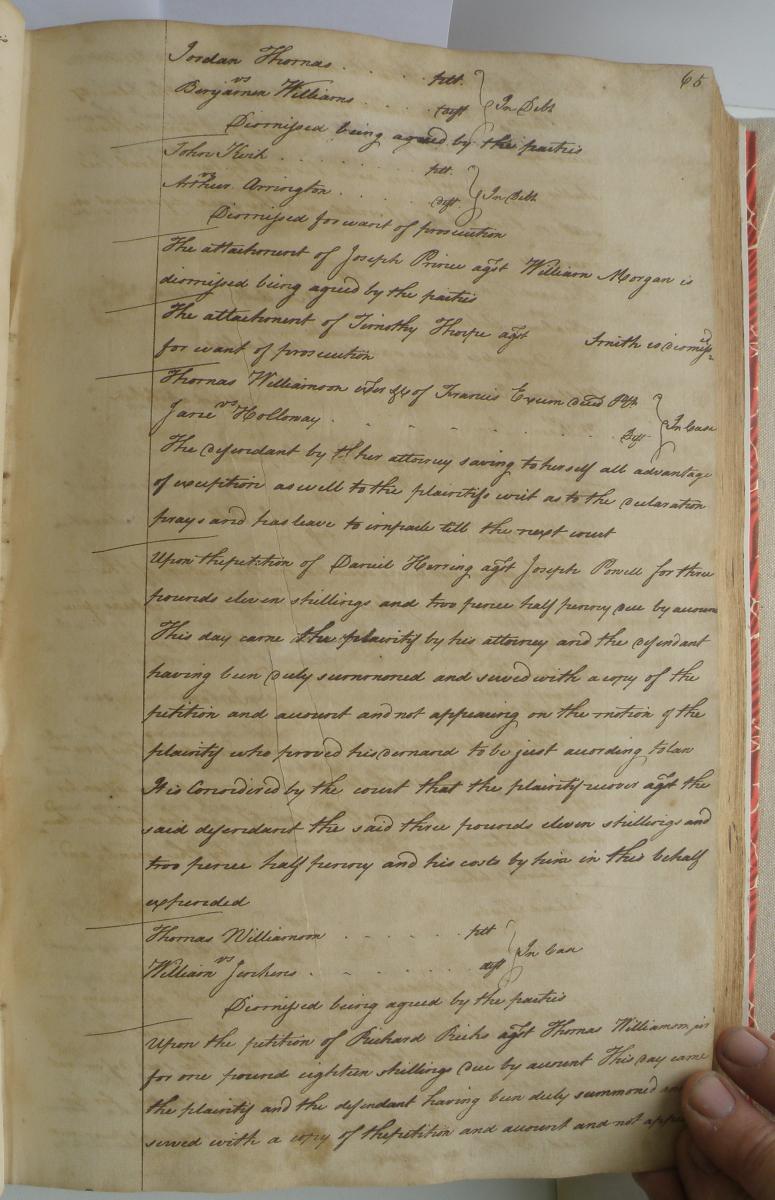 65
Jordan Thomas . . . . plt.
vs } In Debt
Benjamin Williams . . . deft
Dismissed being agreed by the parties
John Kirk . . . . plt.
vs } In Debt
Arthur Arrington . . . . deft
Dismissed for want of prosecution
The attachment of Joseph Prince agst William Morgan is
dismissed being agreed by the parties
The attachment of Timothy Thorpe agst Smith is dismissed
for want of prosecution
Thomas Williamson exor &c of Francis Exum decd Plt.
vs } In Case
Jane Holloway . . . . Deft
The defendant by her attorney saving to herself all advantage
of exception as well to the plaintifs writ as to the declaration
prays and has leave to imparle till the next court
Upon the petition of Daniel Herring agst Joseph Powell for three
pounds eleven shillings and two pence half penny due by account
This day came the plaintif by his attorney and the defendant
having been duly summoned and served with a copy of the
petition and account and not appearing on the motion of the
plaintif who proved his demand to be just according to law
It is Considered by the court that the plaintif recover agst the
said defendant the said three pounds eleven shillings and
two pence half penny and his costs by him in this behalf
expended
Thomas Williamson . . . . plt
vs } In Case
William Jenkins . . . . deft
Dismissed being agreed by the parties
Upon the petition of Richard Ricks agst Thomas Williamson jnr
for one pound eighteen shillings due by account This day came
the plaintif and the defendant having been duly summoned and
served with a copy of the petition and account and not appe